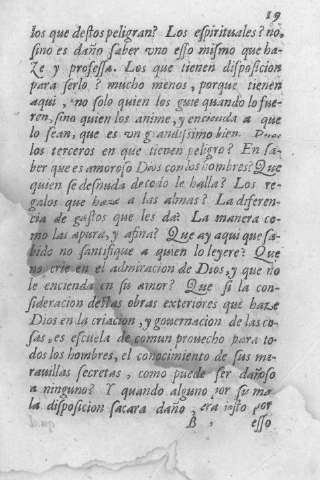 19
los que destos peligran? Los espirituales? no,
sino es daño saber vno esso mismo que ha-
ze y professa. Los que tienen disposicion
para serlo? mucho menos, porque tienen
aqui, no solo quien los guie quando lo fue-
ren, sino quien los anime, y encienda a que
lo sean, que es vn grandissimo bien. Pues
los terceros en que tienen peligro? En sa-
ber que es amoroso Dios con los hombres? Que
quien se desnuda de todo le halla? Los re-
galos que haze a las almas? La diferen-
cia de gustos que les da? La manera co-
mo las apura, y afina? Que ay aqui que sa-
bido no santifique a quien lo leyere? Que
no crie en el admiracion de Dios, y que no
le encienda en su amor? Que si la con-
sideracion destas obras exteriores que haze
Dios en la criacion, y gouernacion de las co-
sas, es escuela de comun prouecho para to-
dos los hombres, el conocimiento de sus ma-
rauillas secretas, como puede ser dañoso
a ninguno? Y quando alguno por su ma-
la disposicion sacara daño, era iusto por
B esso